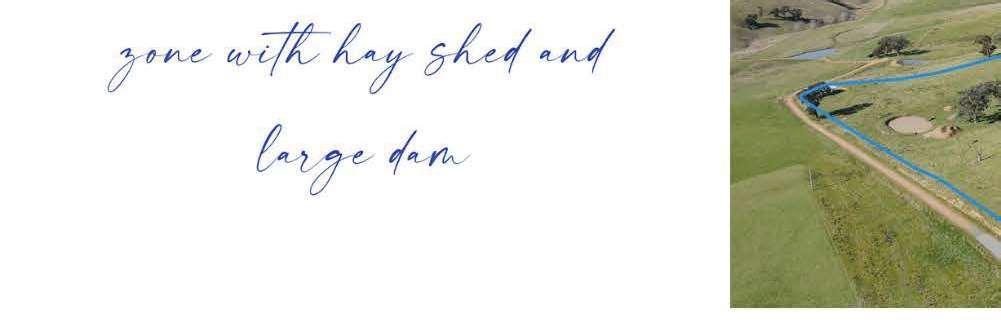 zone with hay shed and
large dam